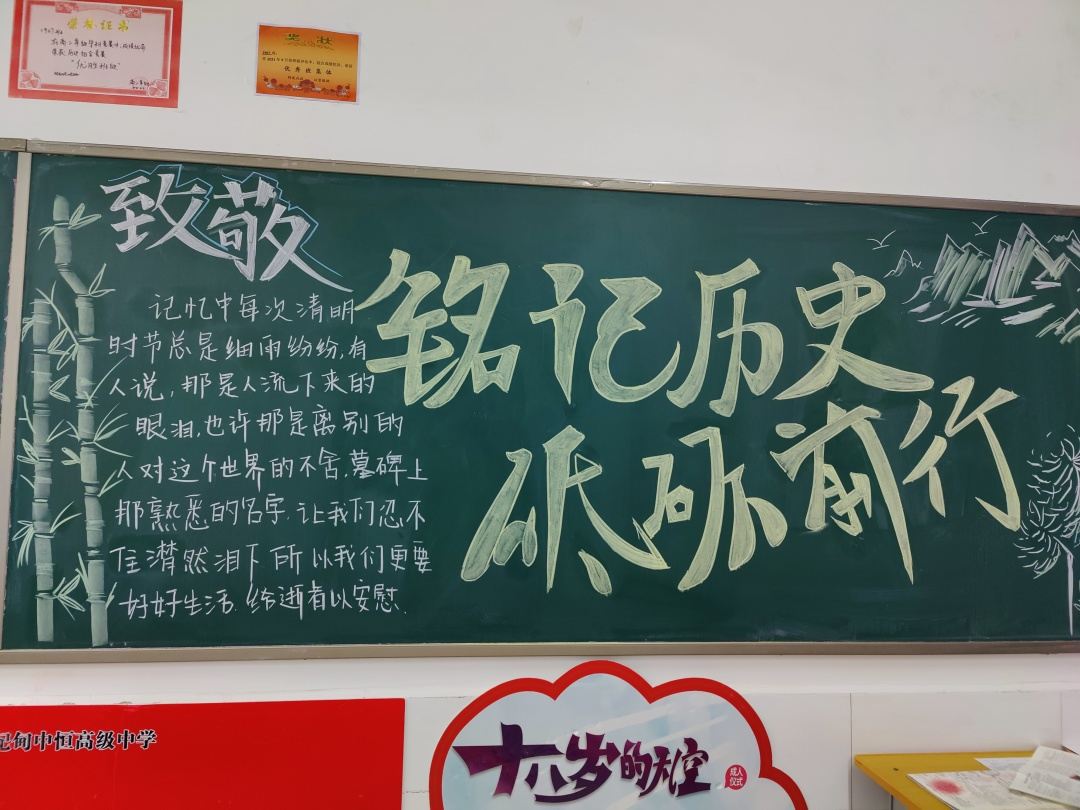 荣誉证书
"优胜班级"
奖状
优秀班集体
致敬
记忆中每次清明
时节总是细雨纷纷,有
人说,那是人流下来的
眼泪,也许那是离别的
人对这个世界的不舍,墓碑上
那熟悉的名字,让我们忍不
住潸然泪下所以我们更要
好好生活,给逝者以安慰.
铭记历史
砥砺前行
甸中恒高级中学
十八岁的天空
成人
仪式